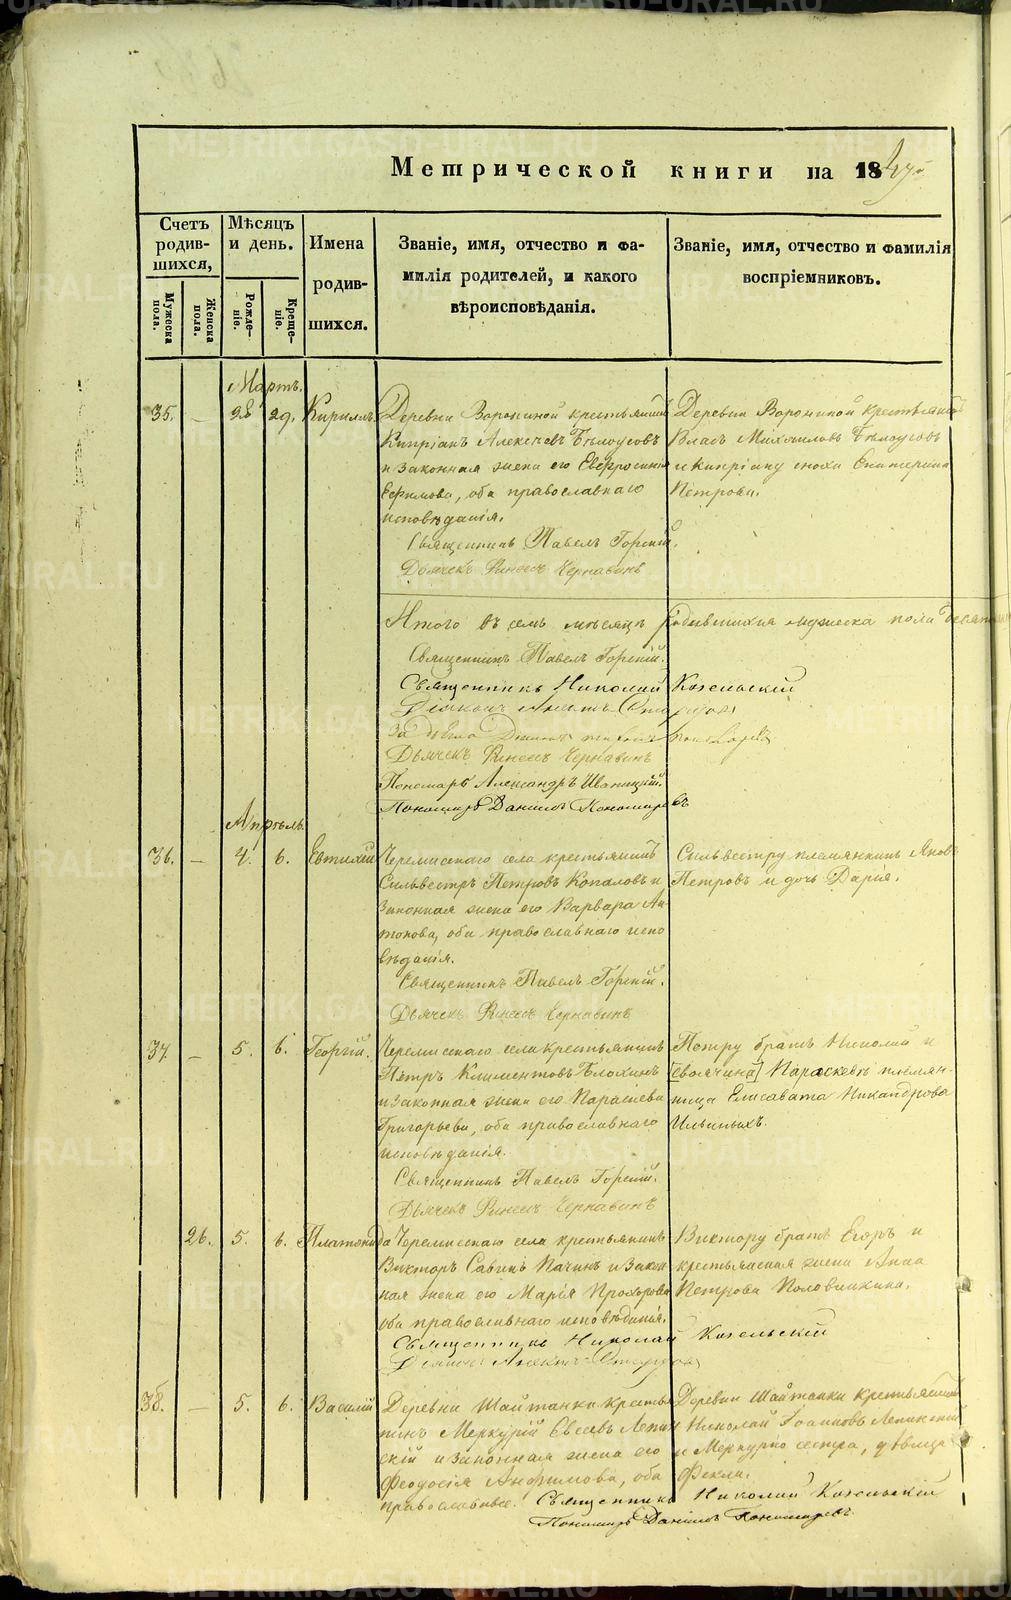 Метрической книги на 1847
Счетъ родив-шихся,
Мѣсяцъ и день.
Имена родив-шихся.
Званіе, имя, отчество и фа-
милія родителей, и какого
вѣроисповѣданія.
Званіе, имя, отчество и фамилія
воспріемниковъ.
Мужеска пола.
Женска пола.
Рожде-ніе.
Креще-ніе.
Мартъ.
35. — 28 29. Кириллъ.
Деревни Ворониной крестьянинъ
Кипріанъ Алексѣевъ Бѣлоусовъ
и законная жена его Евфросинія
Ефимова, оба православнаго
исповѣданія.
Деревни Ворониной крестьянинъ
Власъ Михайловъ Бѣлоусовъ
и Кипріану сноха Екатерина
Петрова.
Священникъ Павелъ Горскій.
Дьячекъ Чернавинъ
Итого въ семъ мѣсяцѣ родившихся мужеска пола
Священникъ Павелъ Горскій.
Священникъ Николай Козельскій
Діаконъ
Дьячекъ Чернавинъ
Пономарь Александръ Иваницкій.
Пономарь Даніилъ Пономаревъ
Апрѣль.
36. — 4. 6. Евтихій
Черемисскаго села крестьянинъ
Сильвестръ Петровъ Копаловъ и
законная жена его Варвара Ан-
тонова, оба православнаго испо
вѣданія.
Сильвестру племянникъ Яковъ
Петровъ и дочь Дарія.
Священникъ Павелъ Горскій.
Дьячекъ Чернавинъ
37. — 5. 6. Георгій.
Черемисскаго села крестьянинъ
Петръ Климентовъ Блохинъ
и законная жена его Параскева
Григорьева, оба православнаго
исповѣданія.
Петру братъ Николай и
[своячина] Параскевѣ племян-
ница Елисавета Никандрова
Ильиныхъ.
Священникъ Павелъ Горскій.
Дьячекъ Чернавинъ
26. 5. 6. Платонида
Черемисскаго села крестьянинъ
Викторъ Савинъ Пачинъ и закон
ная жена его Марія Прохорова
оба православнаго исповѣданія.
Виктору братъ Егоръ и
крестьянская жена Анна
Петрова Половинкина.
Священникъ Николай Козельскій
Діаконъ
38. — 5. 6. Василій
Деревни Шайтанки крестья
нинъ Меркурій Евсеевъ Лепин
скій и законная жена его
Феодосія Анфимова, оба
православные.
Деревни Шайтанки крестьянинъ
Николай Іоанновъ Лепинскій
и Меркурію сестра, дѣвица
Фекла.
Священникъ Николай Козельскій
Пономарь Даніилъ Пономаревъ.
METRIKI.GASO-URAL.RU